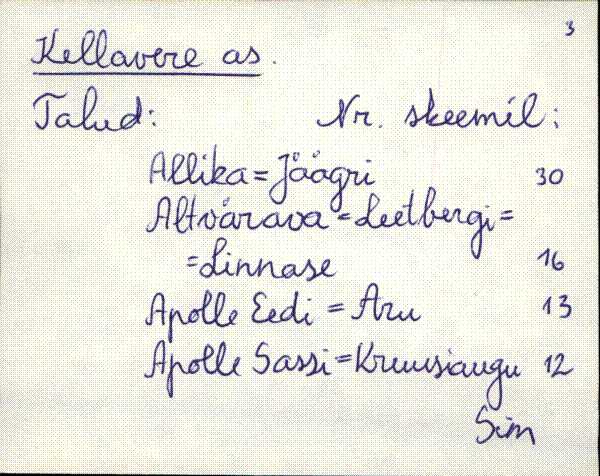 3
Kellavere as.
Talud: Nr. skeemil:
Allika = Jäägri 30
Altvärava = Leetbergi =
= Linnase 16
Apolle Eedi = Aru 13
Apolle Sassi = Kruusiaugu 12
Sim